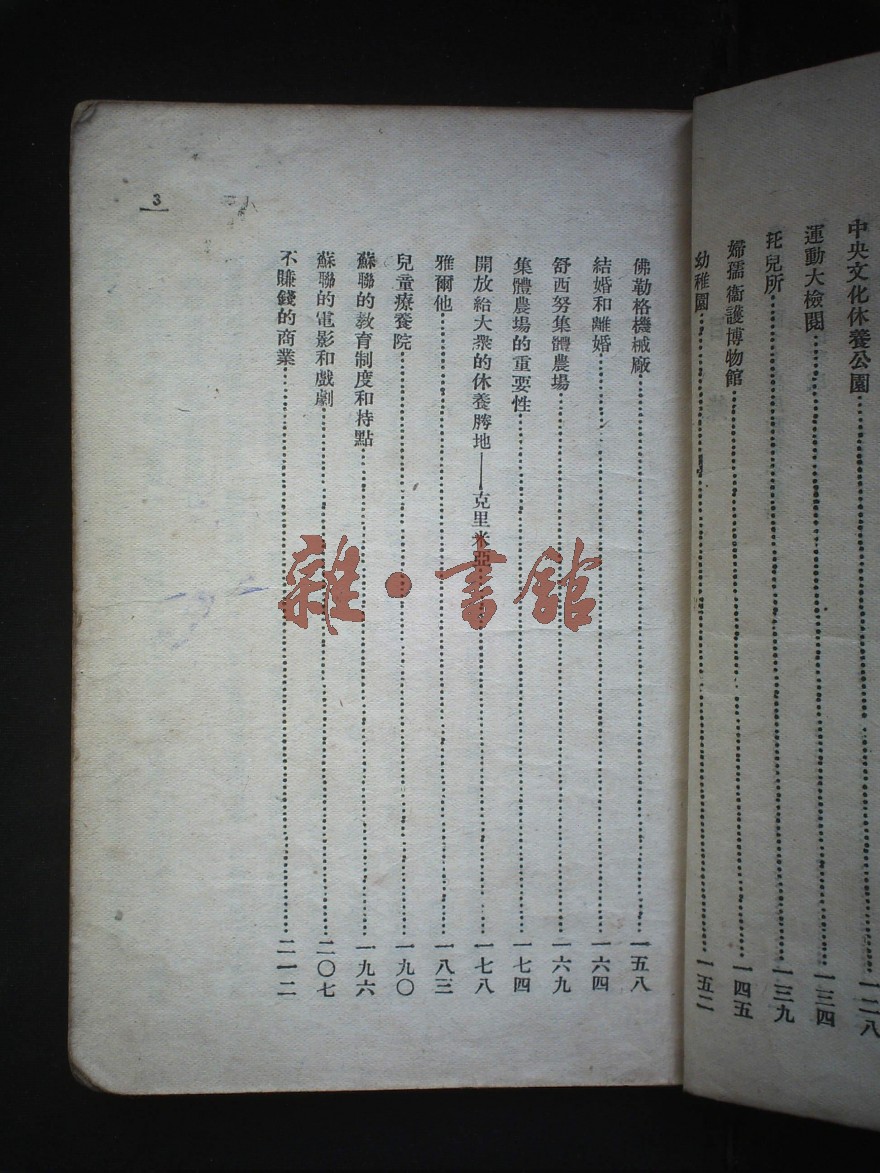 中央文化休養公園……一二八
運動大檢閱……一三四
托兒所……一三九
婦孺衞護博物館……一四五
幼稚園……一五二
佛勒格機械廠……一五八
結婚和離婚……一六四
舒西努集體農場……一六九
集體農場的重要性……一七四
開放給大衆的休養勝地——克里米亞……一七八
雅爾他……一八三
兒童療養院……一九〇
蘇聯的教育制度和持點……一九六
蘇聯的電影和戲劇……二〇七
不賺錢的商業……二一二
3
雜·書館